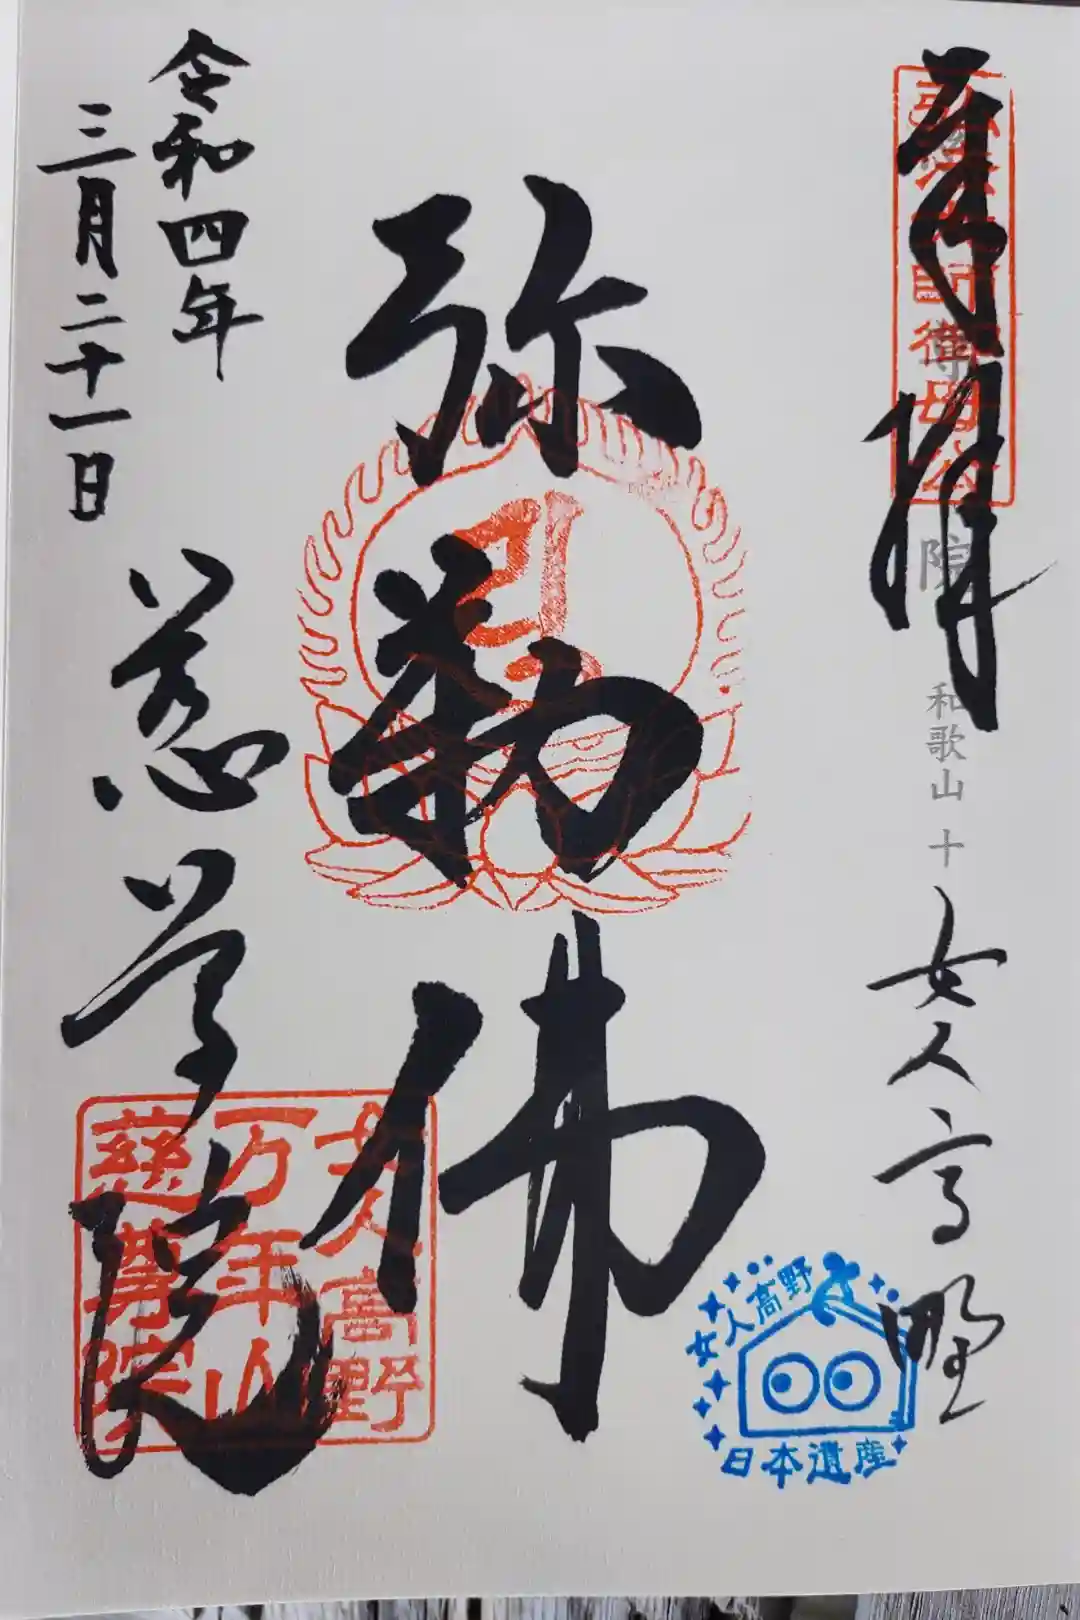 奉拝
弘法大師御母公
院 和歌山 十
女人高野
弥勒佛
令和四年
三月二十一日
慈尊院
女人高野
万年山
慈尊院
女人高野
日本遺産